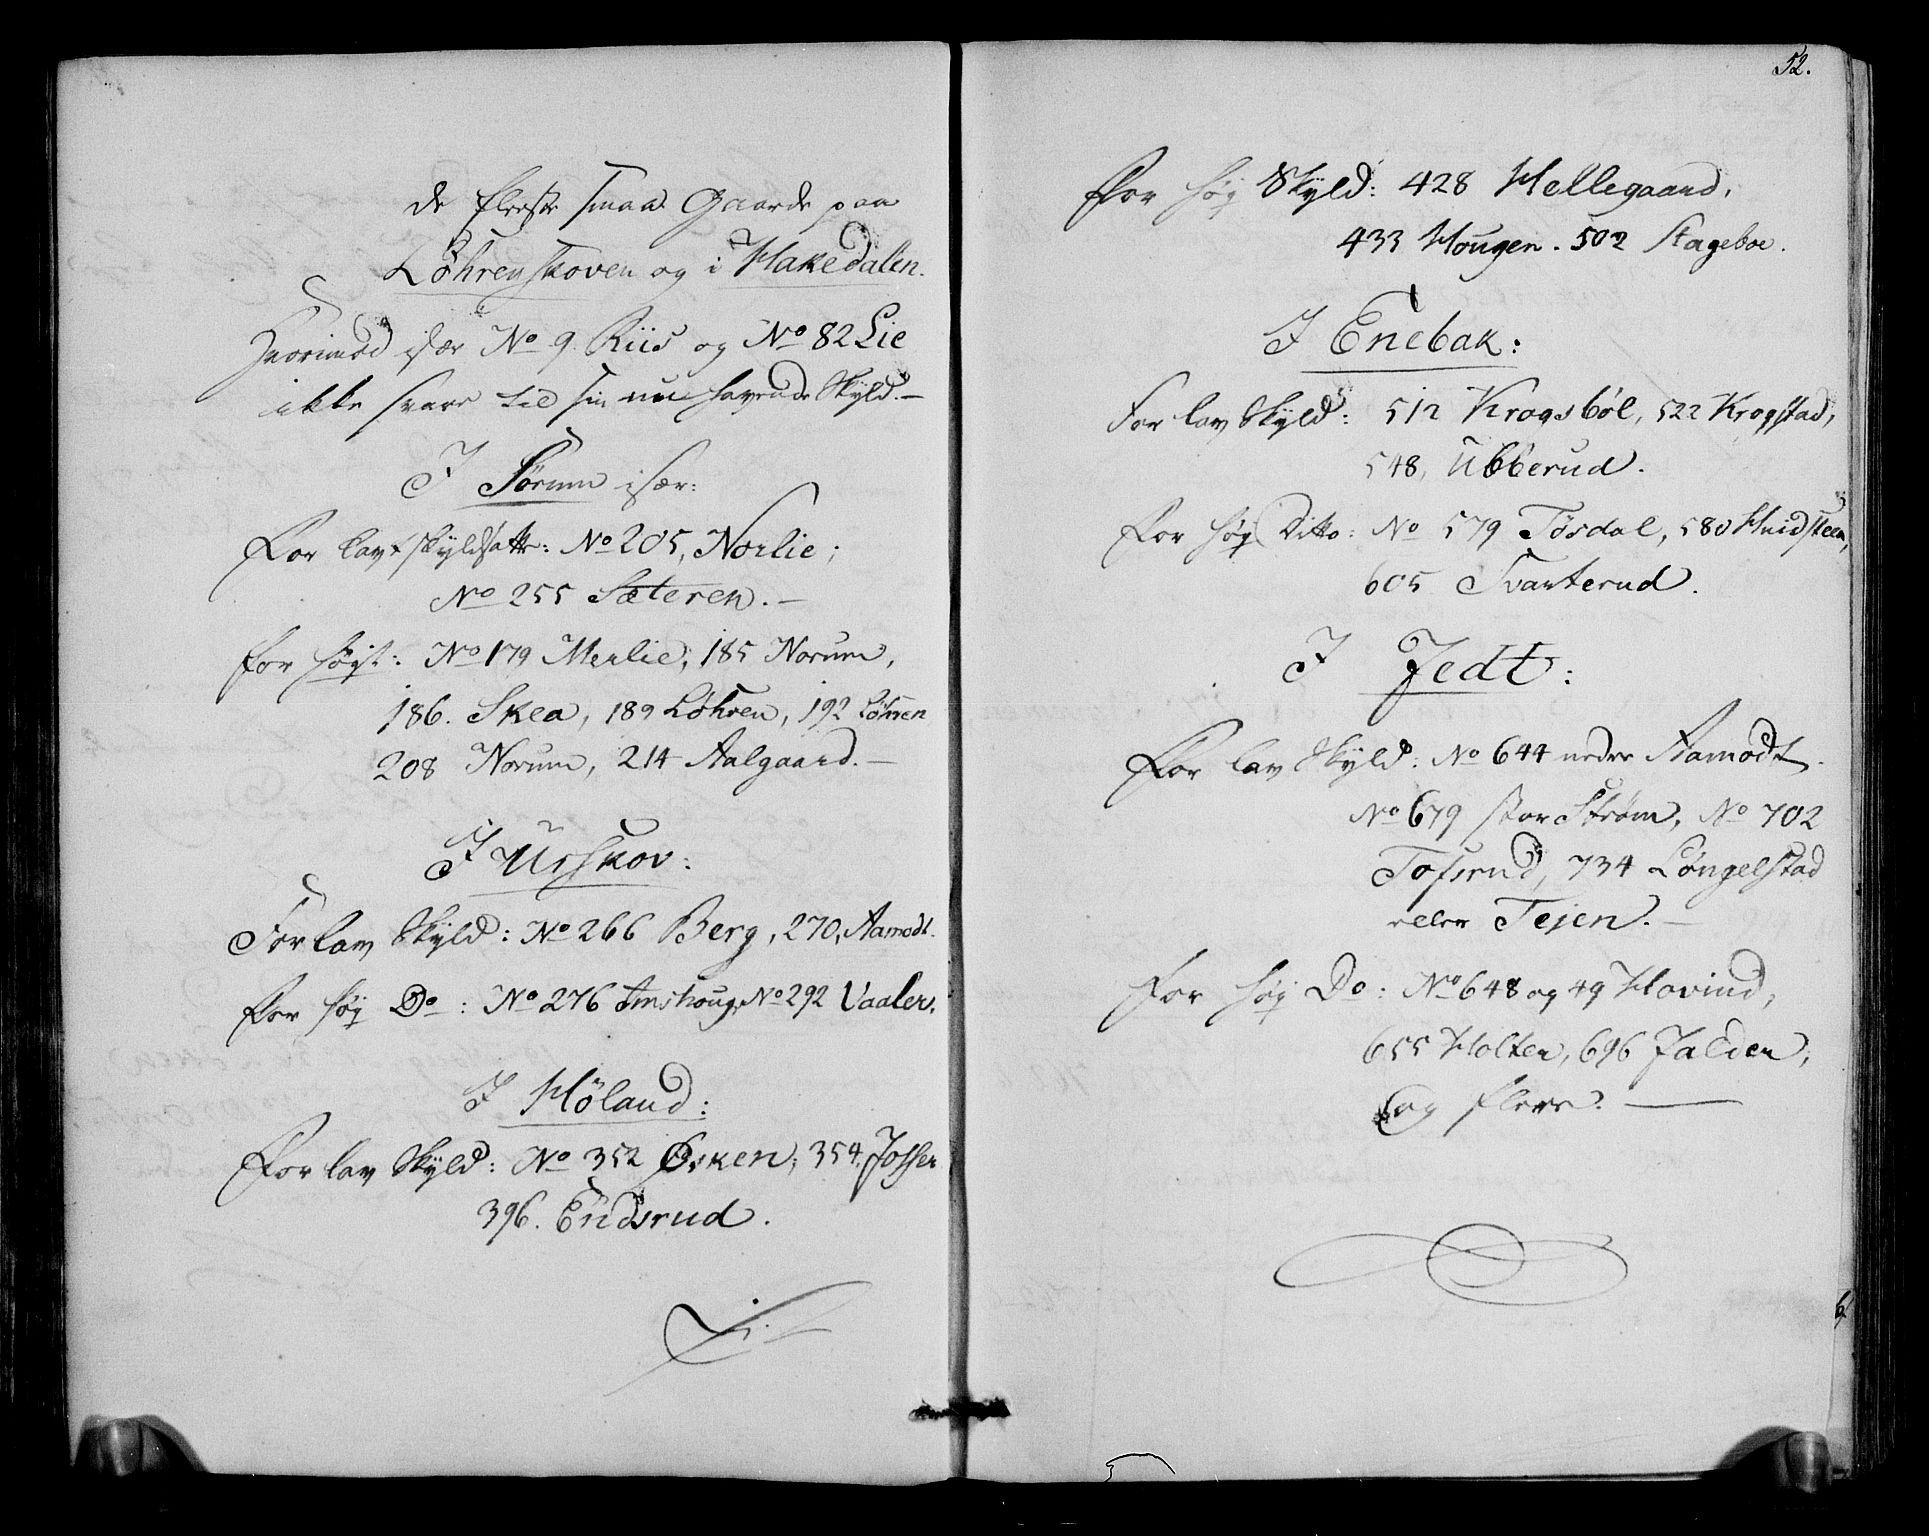 de fleeste smaa Gaarde paa
Löhrenskoven og i Hakedalen.
Hvorimod især No 9. Riis og No 82 Lie
ikke svare til sin nu havende Skyld. —
I Sørum især:
For lavt skyldsatte: No 205, Norlie;
No 255 Sæteren. —
for høyt: No 179 Merlie, 185 Norum,
186. Skea, 189 Löhren, 192 Löhren
208 Norum, 214 Aalgaard. —
I Urskov:
For lav Skyld: No 266 Berg, 270, Aamodt.
For høy Do: No 276 No 292 Vaaler.
I Höland:
For lav Skyld: No 352 Ösken; 354,
396. Endsrud.
52.
For høy Skyld: 428 Hellegaard,
433 Hougen. 502 Stageboe.
I Enebak:
For lav Skyld: 512 Krogsböl, 522 Krogstad,
548, Ubberud.
For høy Ditto: No 579 Tösdal, 580 Hvidsteen,
605 Svarterud.
I Fedt:
For lav Skyld: No 644 nedre Aamodt.
No 679 stor Strøm, No 702
Tofsrud, 734 Löngelstad
eller Tejen. —
For høy Do: No 648 og 49 Hovind,
655 Holten, 696 Falden,
og flere. —